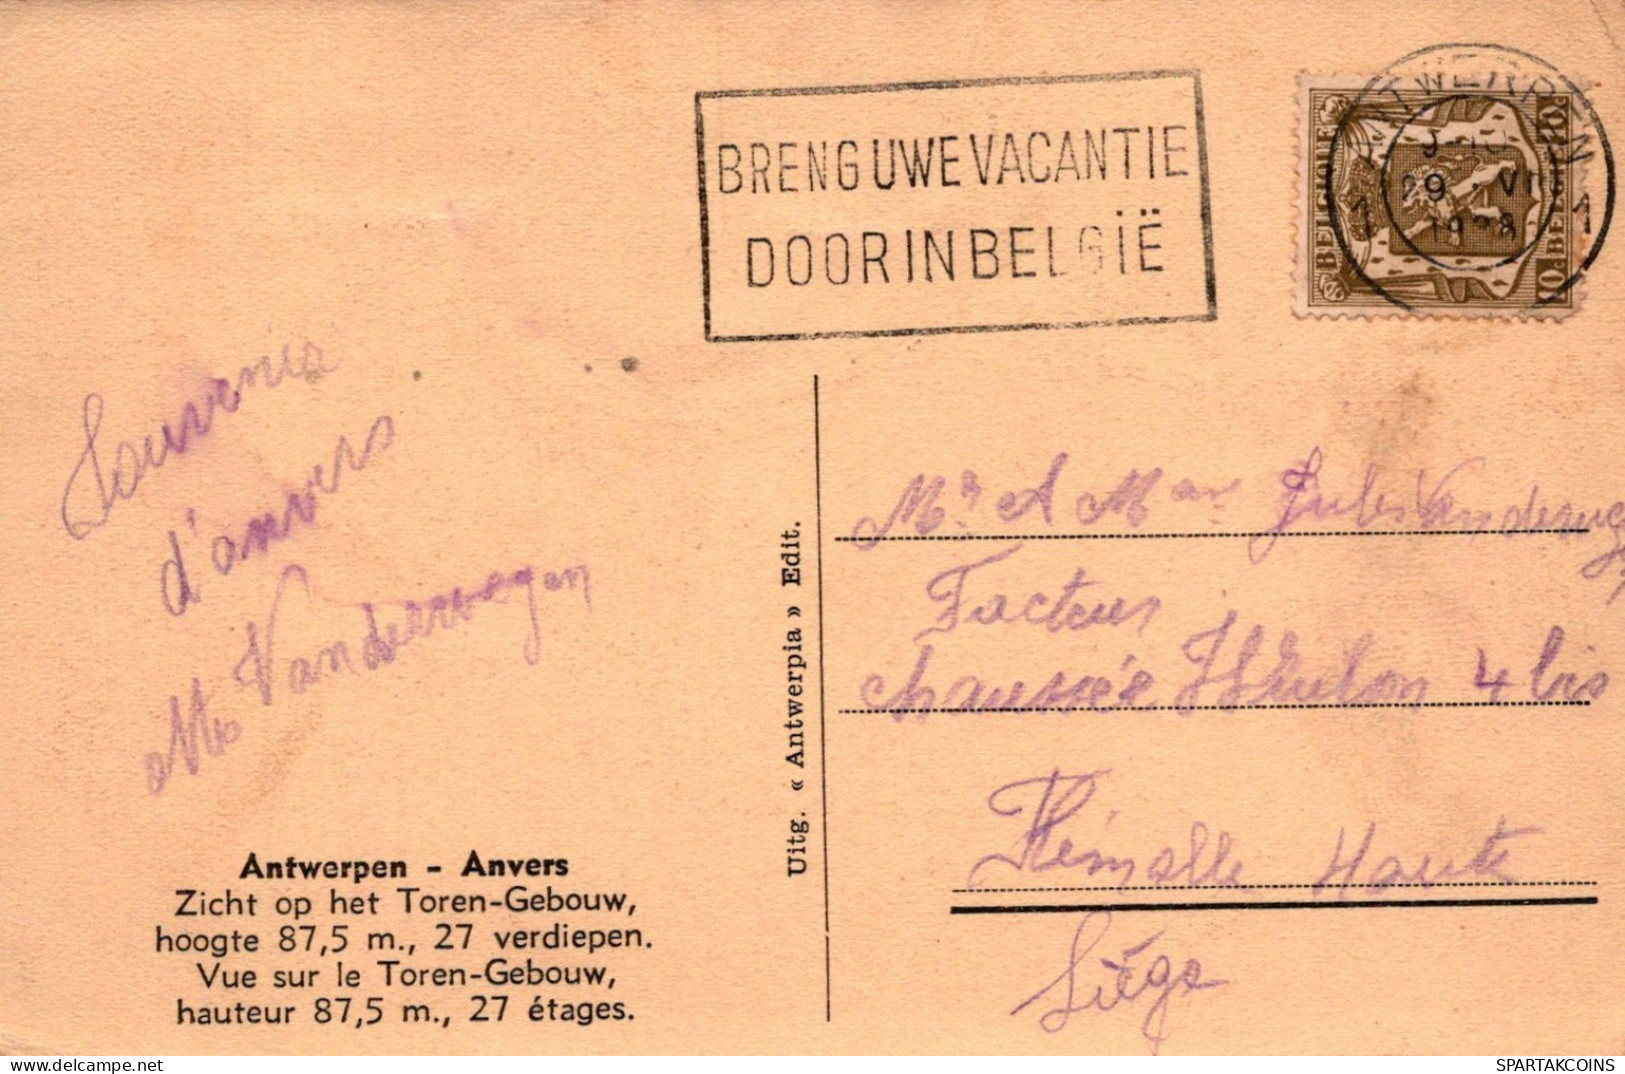 BRENG UWE VACANTIE
DOOR IN BELGIË
ANTWERPEN
1 1
29 VI
BELGIQUE
BELGIË
10c
10c
Souvenir
d'anvers
Vanderwegen
Antwerpen - Anvers
Zicht op het Toren-Gebouw,
hoogte 87,5 m., 27 verdiepen.
Vue sur le Toren-Gebouw,
hauteur 87,5 m., 27 étages.
Uitg. « Antwerpia » Edit.
Jules
Facteur
chaussée 4 bis
Haute
Liège
SPARTAKCOINS